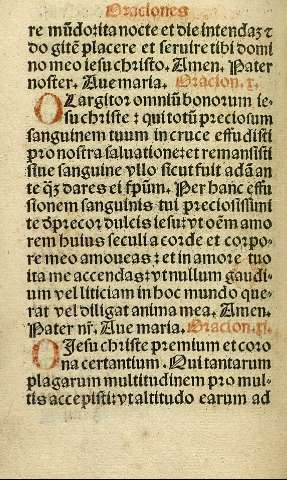 Oraciones
re mūdo: ita nocte et die intendaȝ ⁊
do gitē placere et seruire tibi domi
no meo iesu christo. Amen. Pater
noster. Aue maria. Oracion. x.
O Largitor omniū bonorum ie-
su christe: qui totū preciosum
sanguinem tuum in cruce effudisti
pro nostra saluatione: et remansisti
siue sanguine vllo sicut fuit adā an
te qȝ dares ei spm̄. Per hanc effu
sionem sanguinis tui preciosissimi
te dprecor dulcis iesu: vt oēm amo
rem huius seculi a corde et corpo-
re meo amoueas: et in amore tuo
ita me accendas: vt nullum gaudi-
um vel liticiam in hoc mundo que-
rat vel diligat anima mea. Amen.
Pater nr̄. Aue maria. Oracion. xi.
O Jesu christe premium et coro
na certantium. Qui tantarum
plagarum multitudinem pro mul-
tis accepisti: vt altitudo earum ad